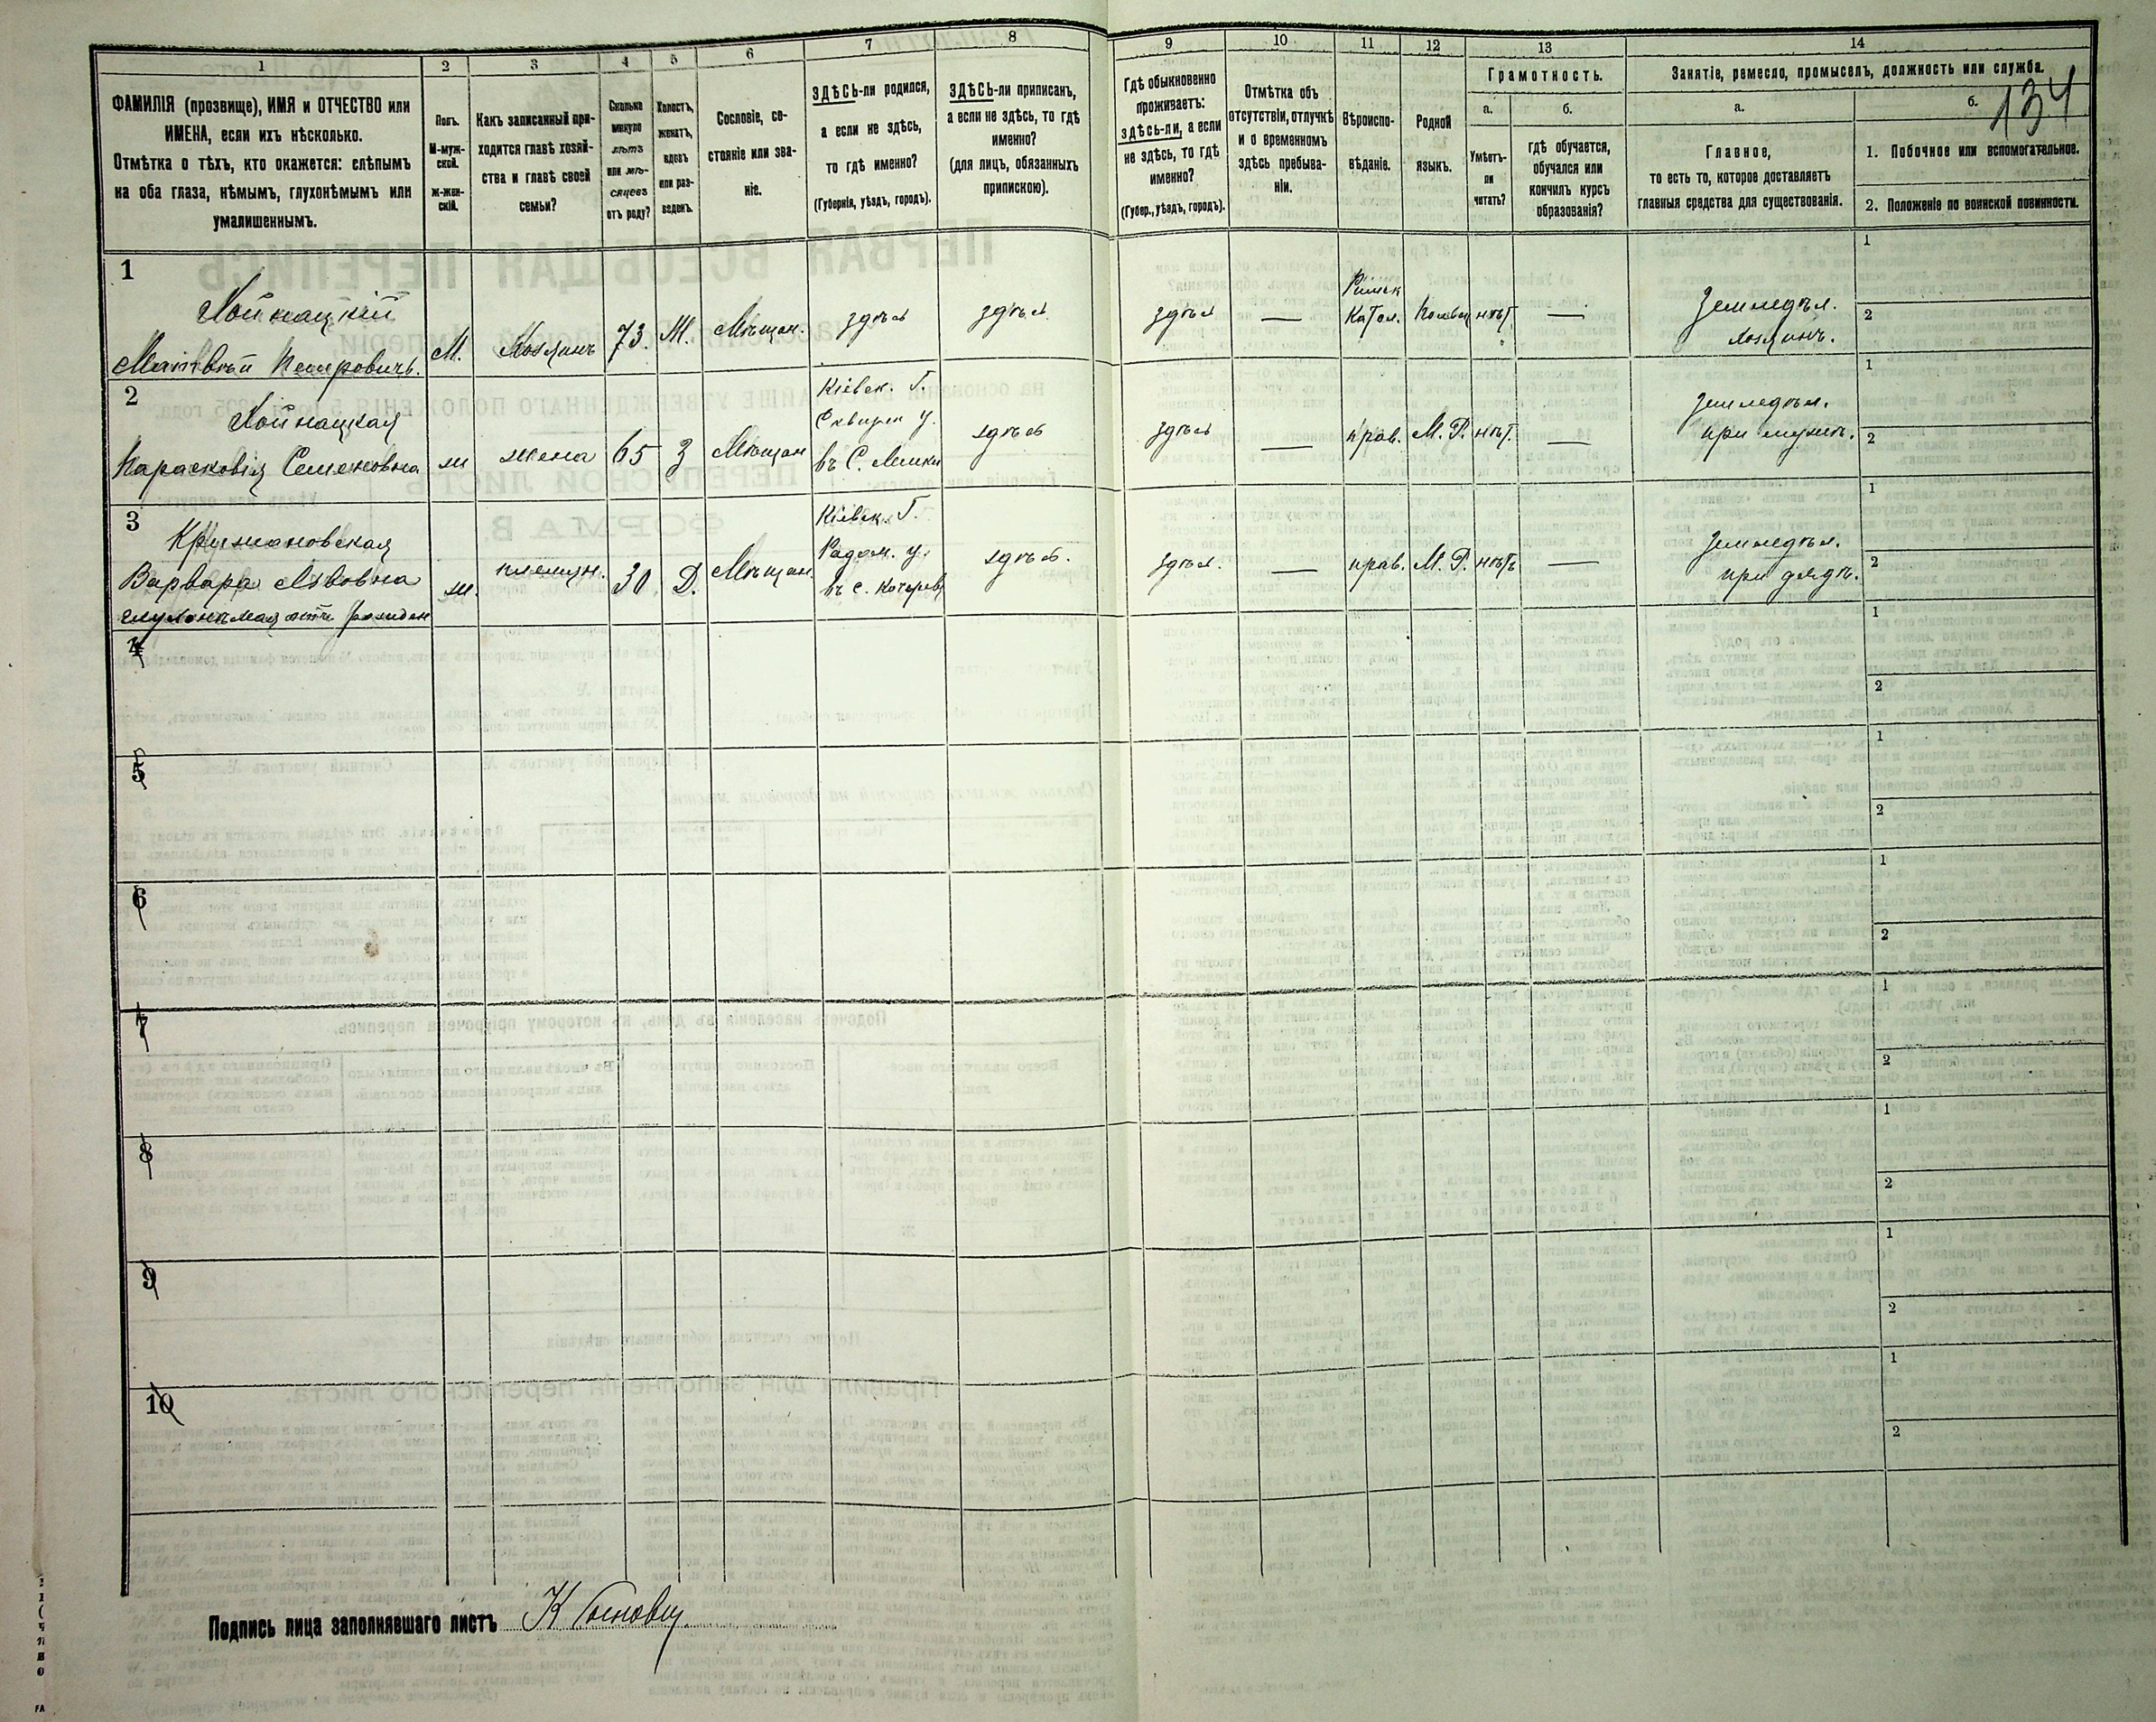 1
2
3
4
5
6
7
8
9
10
11
12
13
14
ФАМИЛІЯ (прозвище), ИМЯ и ОТЧЕСТВО или
ИМЕНА, если ихъ нѣсколько.
Отмѣтка о тѣхъ, кто окажется: слѣпымъ
на оба глаза, нѣмымъ, глухонѣмымъ или
умалишеннымъ.
Полъ.
М-муж-
ской.
Ж-жен-
скій.
Какъ записанный при-
ходится главѣ хозяй-
ства и главѣ своей
семьи?
Сколько
минуло
лѣтъ
или мѣ-
сяцевъ
отъ роду?
Холостъ,
женатъ,
вдовъ
или раз-
веденъ.
Сословіе, со-
стояніе или зва-
ніе.
ЗДѢСЬ-ли родился,
а если не здѣсь,
то гдѣ именно?
(Губернія, уѣздъ, городъ).
ЗДѢСЬ-ли приписанъ,
а если не здѣсь, то гдѣ
именно?
(для лицъ, обязанныхъ
припискою).
Гдѣ обыкновенно
проживаетъ:
здѣсь-ли, а если
не здѣсь, то гдѣ
именно?
(Губер., уѣздъ, городъ).
Отмѣтка объ
отсутствіи, отлучкѣ
и о временномъ
здѣсь пребыва-
ніи.
Вѣроиспо-
вѣданіе.
Родной
языкъ.
Грамотность.
а.
б.
Умѣетъ-
ли
читать?
гдѣ обучается,
обучался или
кончилъ курсъ
образованія?
Занятіе, ремесло, промыселъ, должность или служба.
134
а.
б.
Главное,
то есть то, которое доставляетъ
главныя средства для существованія.
1. Побочное или вспомогательное.
2. Положеніе по воинской повинности.
1
Хойнацкій
Матвѣй Петровичъ.
М.
Хозяинъ
73.
Ж.
Мѣщан.
здѣсь
здѣсь
здѣсь
—
Римск
Катол.
Польск
нѣт
—
Земледѣл.
хозяинъ.
1
2
2
Хойнацкая
Парасковія Семеновна
ж
жена
65
З
Мѣщан
Кіевск. Г.
Сквирск у.
въ С.
здѣсь
здѣсь
—
прав.
М. Р.
нѣт
—
Земледѣл.
при мужѣ.
1
2
3
Крижановская
Варвара Львовна
глухонѣмая отъ рожден
ж.
племян.
30
Д.
Мѣщан.
Кіевск. Г.
Радом. у.
въ с.
здѣсь.
здѣсь.
—
прав.
М. Р.
нѣтъ
—
Земледѣл.
при дядѣ.
1
2
4
1
2
5
1
2
6
1
2
7
1
2
8
1
2
9
1
2
10
1
2
Подпись лица заполнявшаго листъ